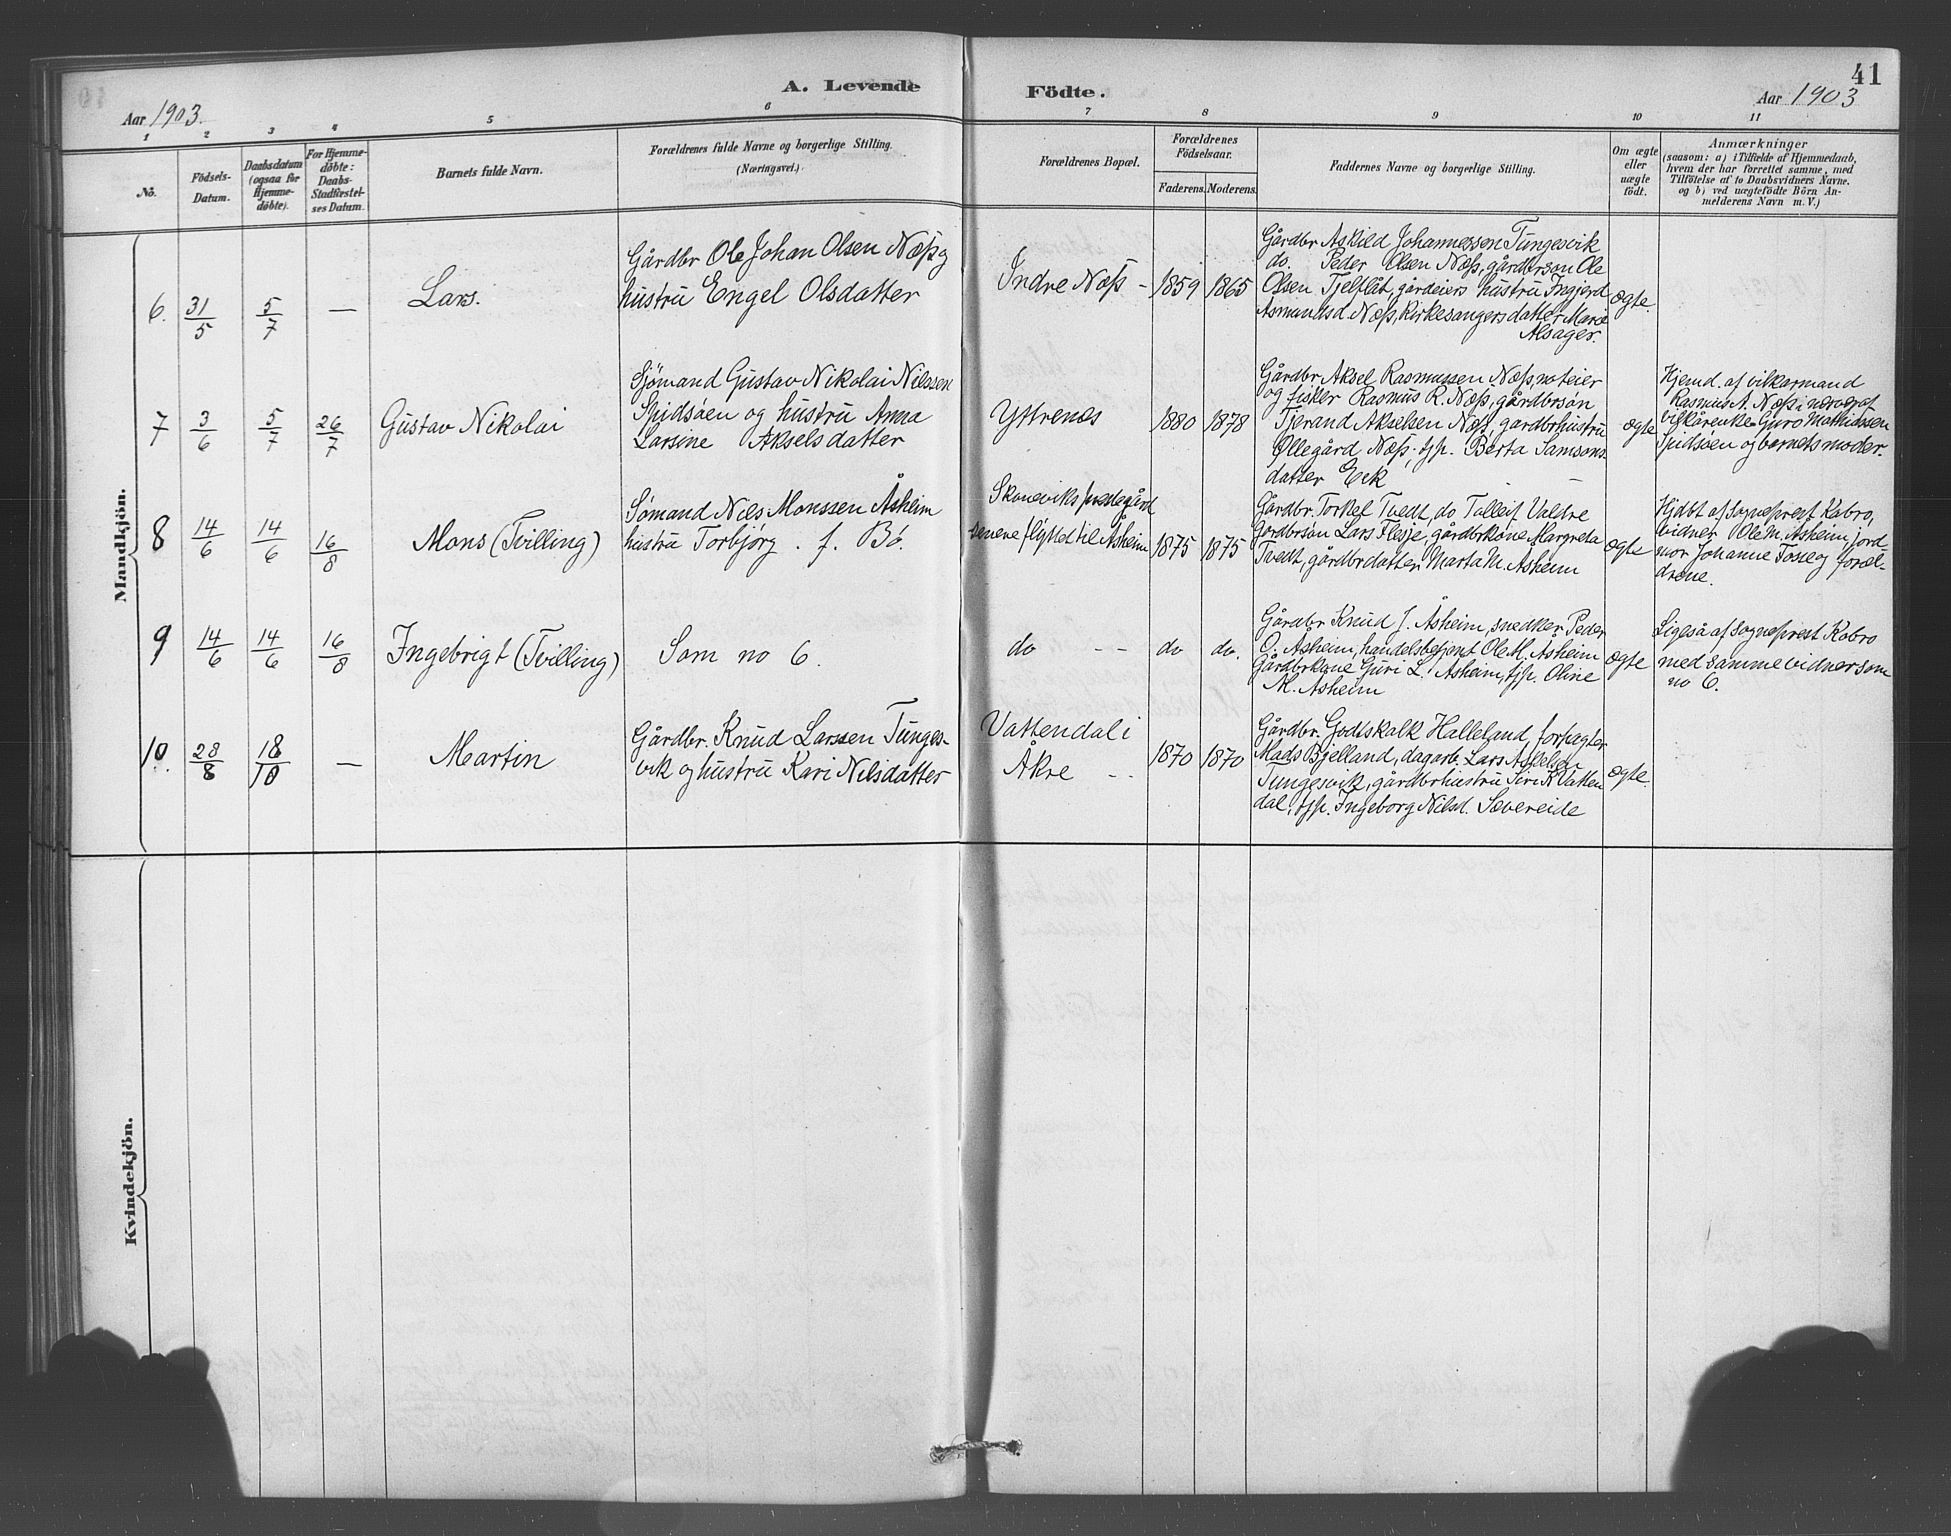 41
A. Levende Födte.
Aar 1903.
Aar 1903
1 2 3 4 5 6 7 8 9 10 11
No.
Födsels-
Datum.
Daabsdatum
(ogsaa for
Hjemme-
döbte).
For Hjemme-
döbte:
Daabs-
Stadfæstel-
ses Datum.
Barnets fulde Navn.
Forældrenes fulde Navne og borgerlige Stilling.
(Næringsvei.)
Forældrenes Bopæl.
Forældrenes
Födselsaar.
Faderens. Moderens.
Faddernes Navne og borgerlige Stilling.
Om ægte
eller
uægte
födt.
Anmærkninger
(saasom: a) i Tilfælde af Hjemmedaab,
hvem der har forrettet samme, med
Tilföielse af to Daabsvidners Navne,
og b) ved uægtefödte Börn An-
melderens Navn m. V.)
Mandkjön.
6. 31/5 5/7 —
Lars.
Gårdbr Ole Johan Olsen Næss og
hustru Engel Olsdatter
Indre Næss -
1859 1865
Gårdbr Askild Johannessen Tungesvik
do. Peder Olsen Næss, gårdbrsøn Ole
Olsen Tjelflåt, gårdeiers hustru Ingjerd
Asmundsd Næss, Kirkesangersdatter Marie
Alsager.
ægte.
7 3/6 5/7 26/7
Gustav Nikolai
Sjømand Gustav Nikolai Nilssen
Spidsøen og hustru Anna
Larsine Akselsdatter
Yttrenæs
1880 1878
Gårdbr Aksel Rasmussen Næss, noteier
og fisker Rasmus R. Næss, gårdbrsøn
Tjerand Akselsen Næss, gårdbrhustru
Øllegård Næss, tjp. Berta Samsons-
datter Eik
ægte
Hjemd. af vilkårmand
Rasmus A. Næss i nærvær af
vilkårenke Guro Mathiassen
Spidsøen og barnets moder.
8 14/6 14/6 16/8
Mons (Tvilling)
Sømand Nils Monssen Åsheim
hustru Torbjørg . f. Bø.
Skoneviks prestegård
senere flyttet til Åsheim
1875 1875
Gårdbr. Torkel Tvedt, do Tolleif Valdre
Gårdbrsøn Lars Flesje, gårdbrkone Margreta
Tvedt, gårdbrdatter Marta M. Åsheim
ægte
Hjdbt af Sogneprest Kobro,
vidner Ole M. Åsheim, jord
mor Johanne Tosse og foræl-
drene.
9 14/6 14/6 16/8
Ingebrigt (Tvilling)
Som no 6.
do - -
do do.
Gårdbr. Knud J. Åsheim, snedker Peder
O. Åsheim, handelsbetjent Ole M. Åsheim
Gårdbrkone Guri L. Åsheim, tjp. Oline
M. Åsheim
ægte
Ligeså af Sogneprest Kobro
med samme vidner som
no 6.
10. 28/8 18/10 —
Martin
Gårdbr. Knud Larssen Tunges-
vik og hustru Kari Nilsdatter
Vattendal i
Åkre - -
1870 1870
Gårdbr. Godtskalk Halleland forpagter
Mads Bjelland, dagarb. Lars Askelsen
Tungesvik, gårdbrhustru Siri K Vatten
dal, tjp. Ingeborg Nilsd. Sævereide
ægte.
Kvindekjön.